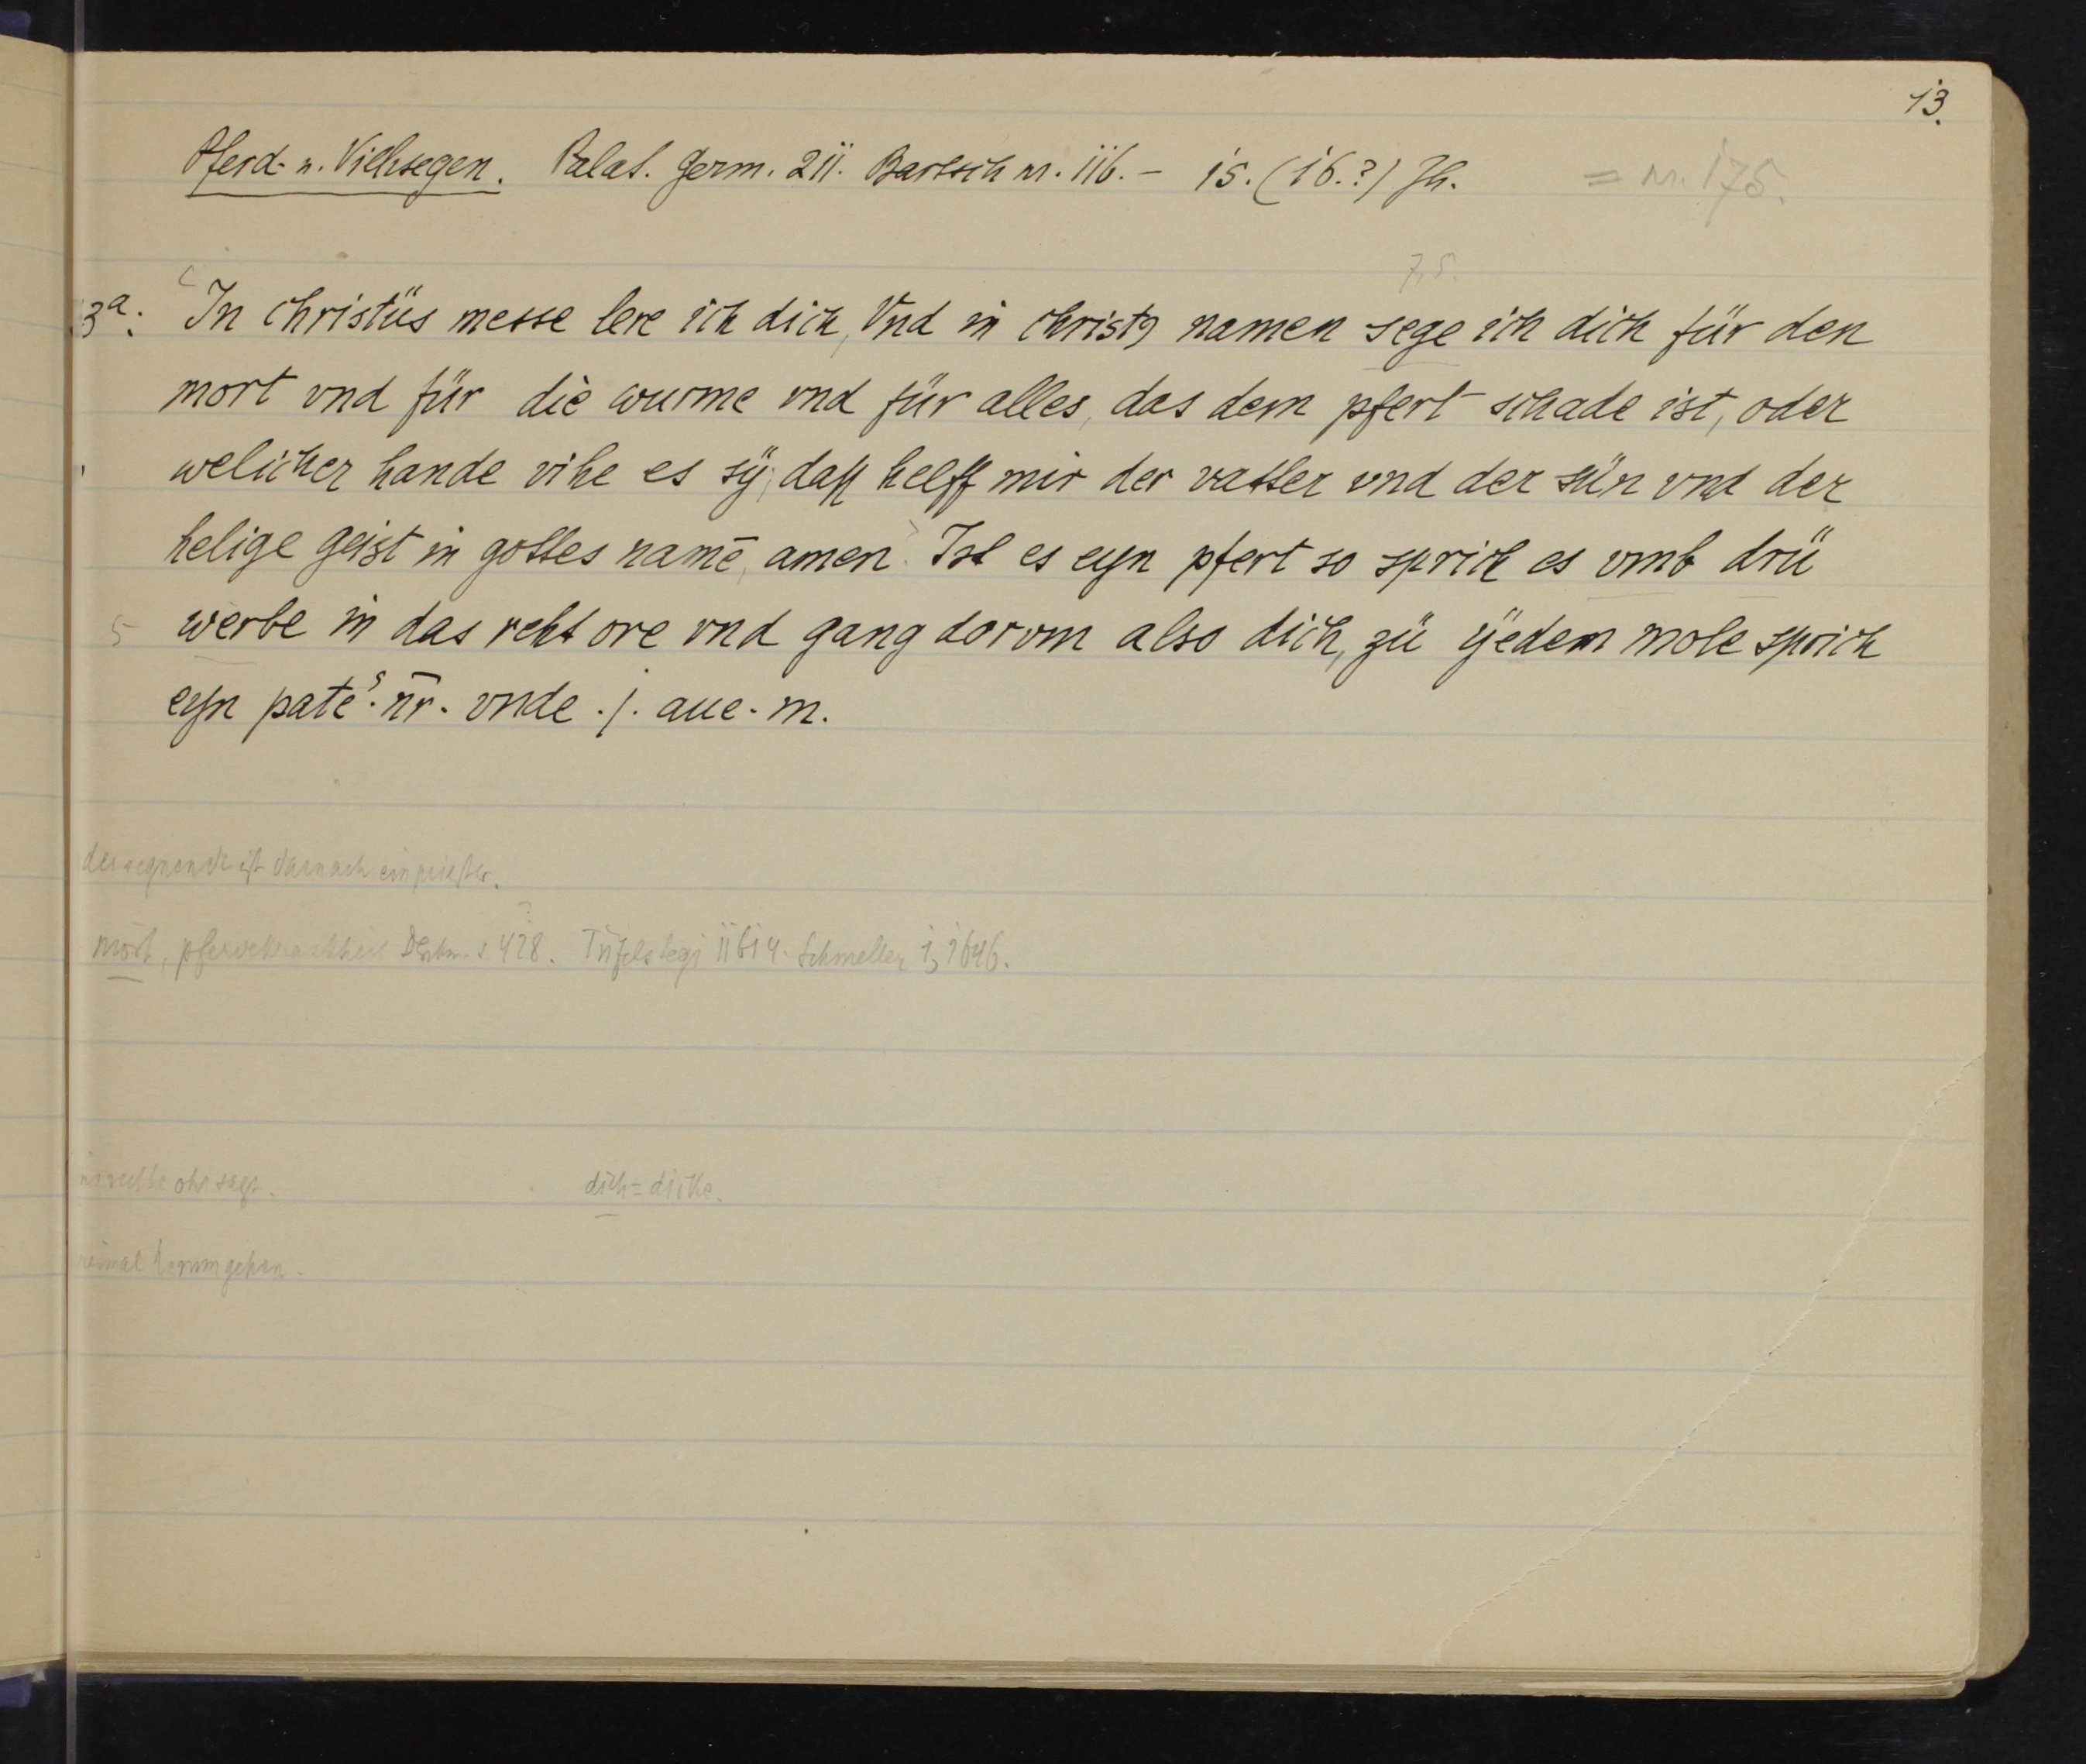 13.
Pferd- u. Viehsegen. Palat. Germ. 211. Bartsch nr. 116. – 15. (16.?) Jh. = nr. 175.
7,5.
3a: In christüs messe lere ich dich, Vnd in christꝯ namen sege ich dich für den
mort vnd für die wurme vnd für alles, das dem pfert schade ist, oder
welicher hande vihe es sÿ, daß helff mir der vatter vnd der sün vnd der
helige geist in gottes namē, amen. Ist es eyn pfert so sprich es vmb drü
5 werbe in das reht ore vnd gang dorvm also dich, zü ÿedem mole sprich
eyn patē˒. nr̄. vnde .j. aue. m.
der segnende ist darnach ein priester.
mort, pferdekrankheit 428. Tüfels segi 11614. Schmeller 1, 1646.
rechte ohr sagt. dich = dicke.
herumgehen.